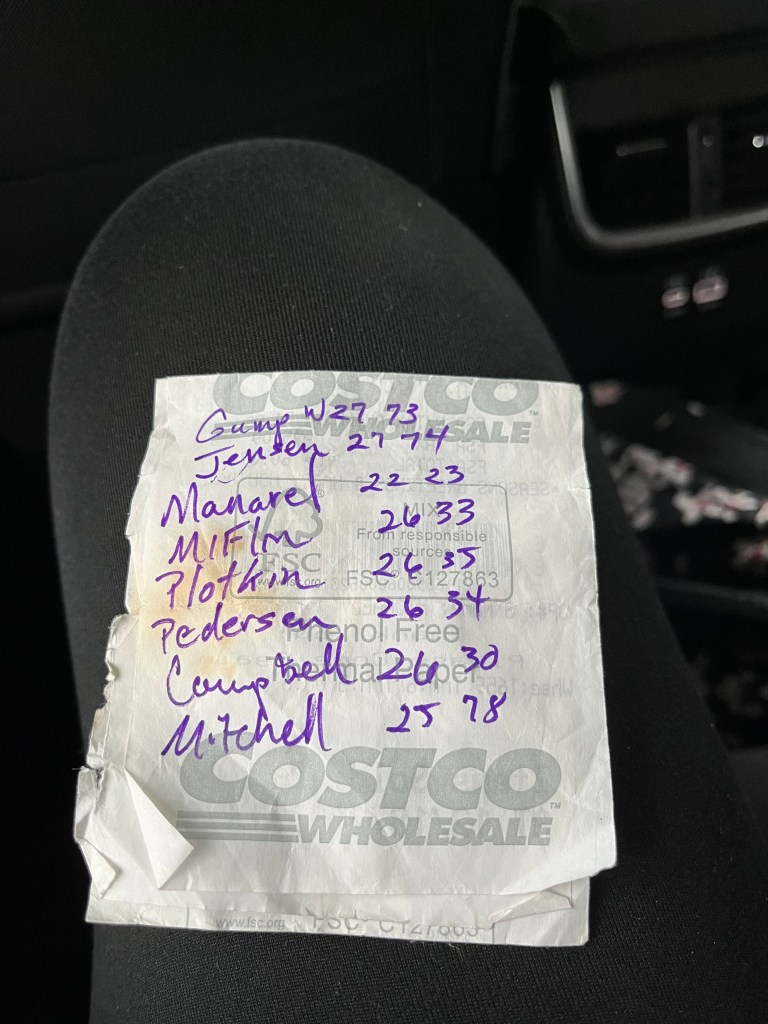 COSTCO
WHOLESALE
Gump W 27 73
Jensen 27 74
Manarel 22 23
MIX
MIFlm 26 33
From responsible
sources
Plotkin 26 35
FSC
www.fsc.org FSC® C127863
Pedersen 26 34
Phenol Free
Campbell 26 30
Thermal Paper
Mitchell 25 78
COSTCO
WHOLESALE
www.fsc.org FSC® C127863